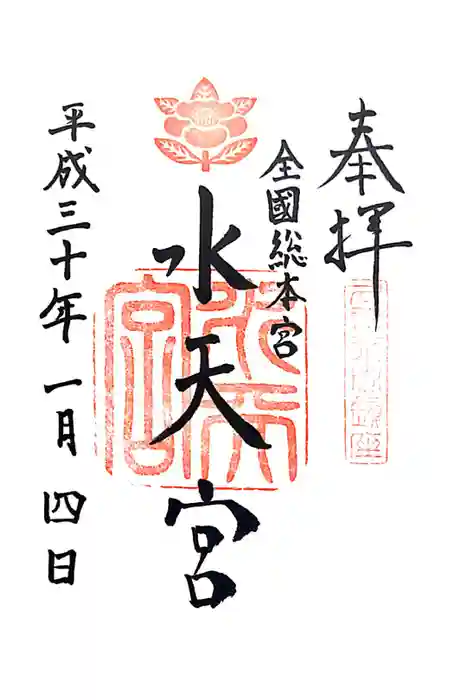 奉拝
全國総本宮
水天宮
平成三十年一月四日